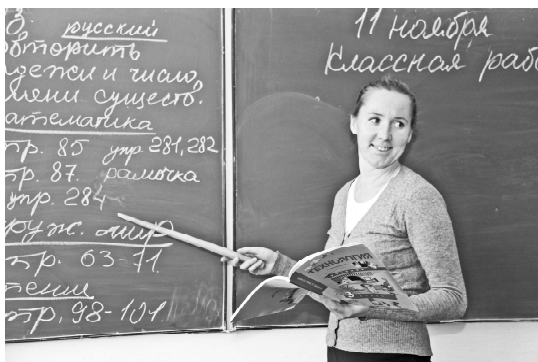 русский
овторить
дежи и число,
мени существ.
атематика
тр. 85 упр 281, 282
тр. 87. рамочка
упр. 284
руж. мир
тр. 63-71
тение
тр. 98-101
11 ноября
Классная рабо
ТЕХНОЛОГИЯ